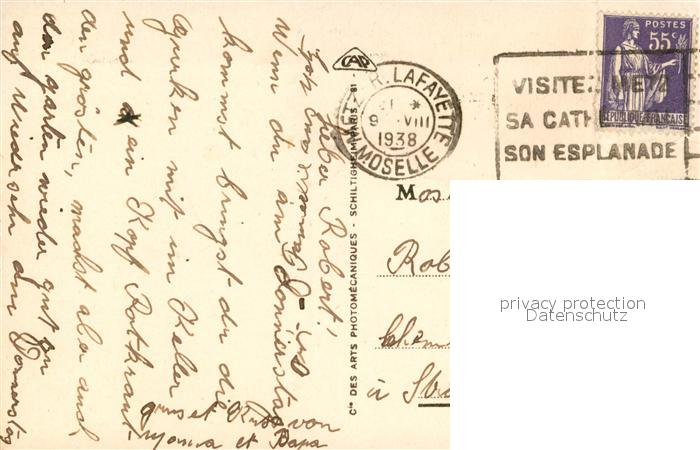 Lieber Robert!
Wenn du am Donnerstag
kommst bringst du die
Gurken mit im Keller
und ein Kopf Rotkraut
den grösten, machst aber auch
den garten wieder gut zu
auf Wiedersehn am Donnerstag
gruss et Küss von
Mama et Papa
CAP
Cie DES ARTS PHOTOMÉCANIQUES - SCHILTIGHEIM-PARIS - 81
METZ R. LAFAYETTE
21 *
9 - VIII
1938
MOSELLE
VISITEZ METZ
SA CATH
SON ESPLANADE
POSTES
55c
REPUBLIQUE FRANÇAISE
Mos
Rob
à Str
privacy protection
Datenschutz